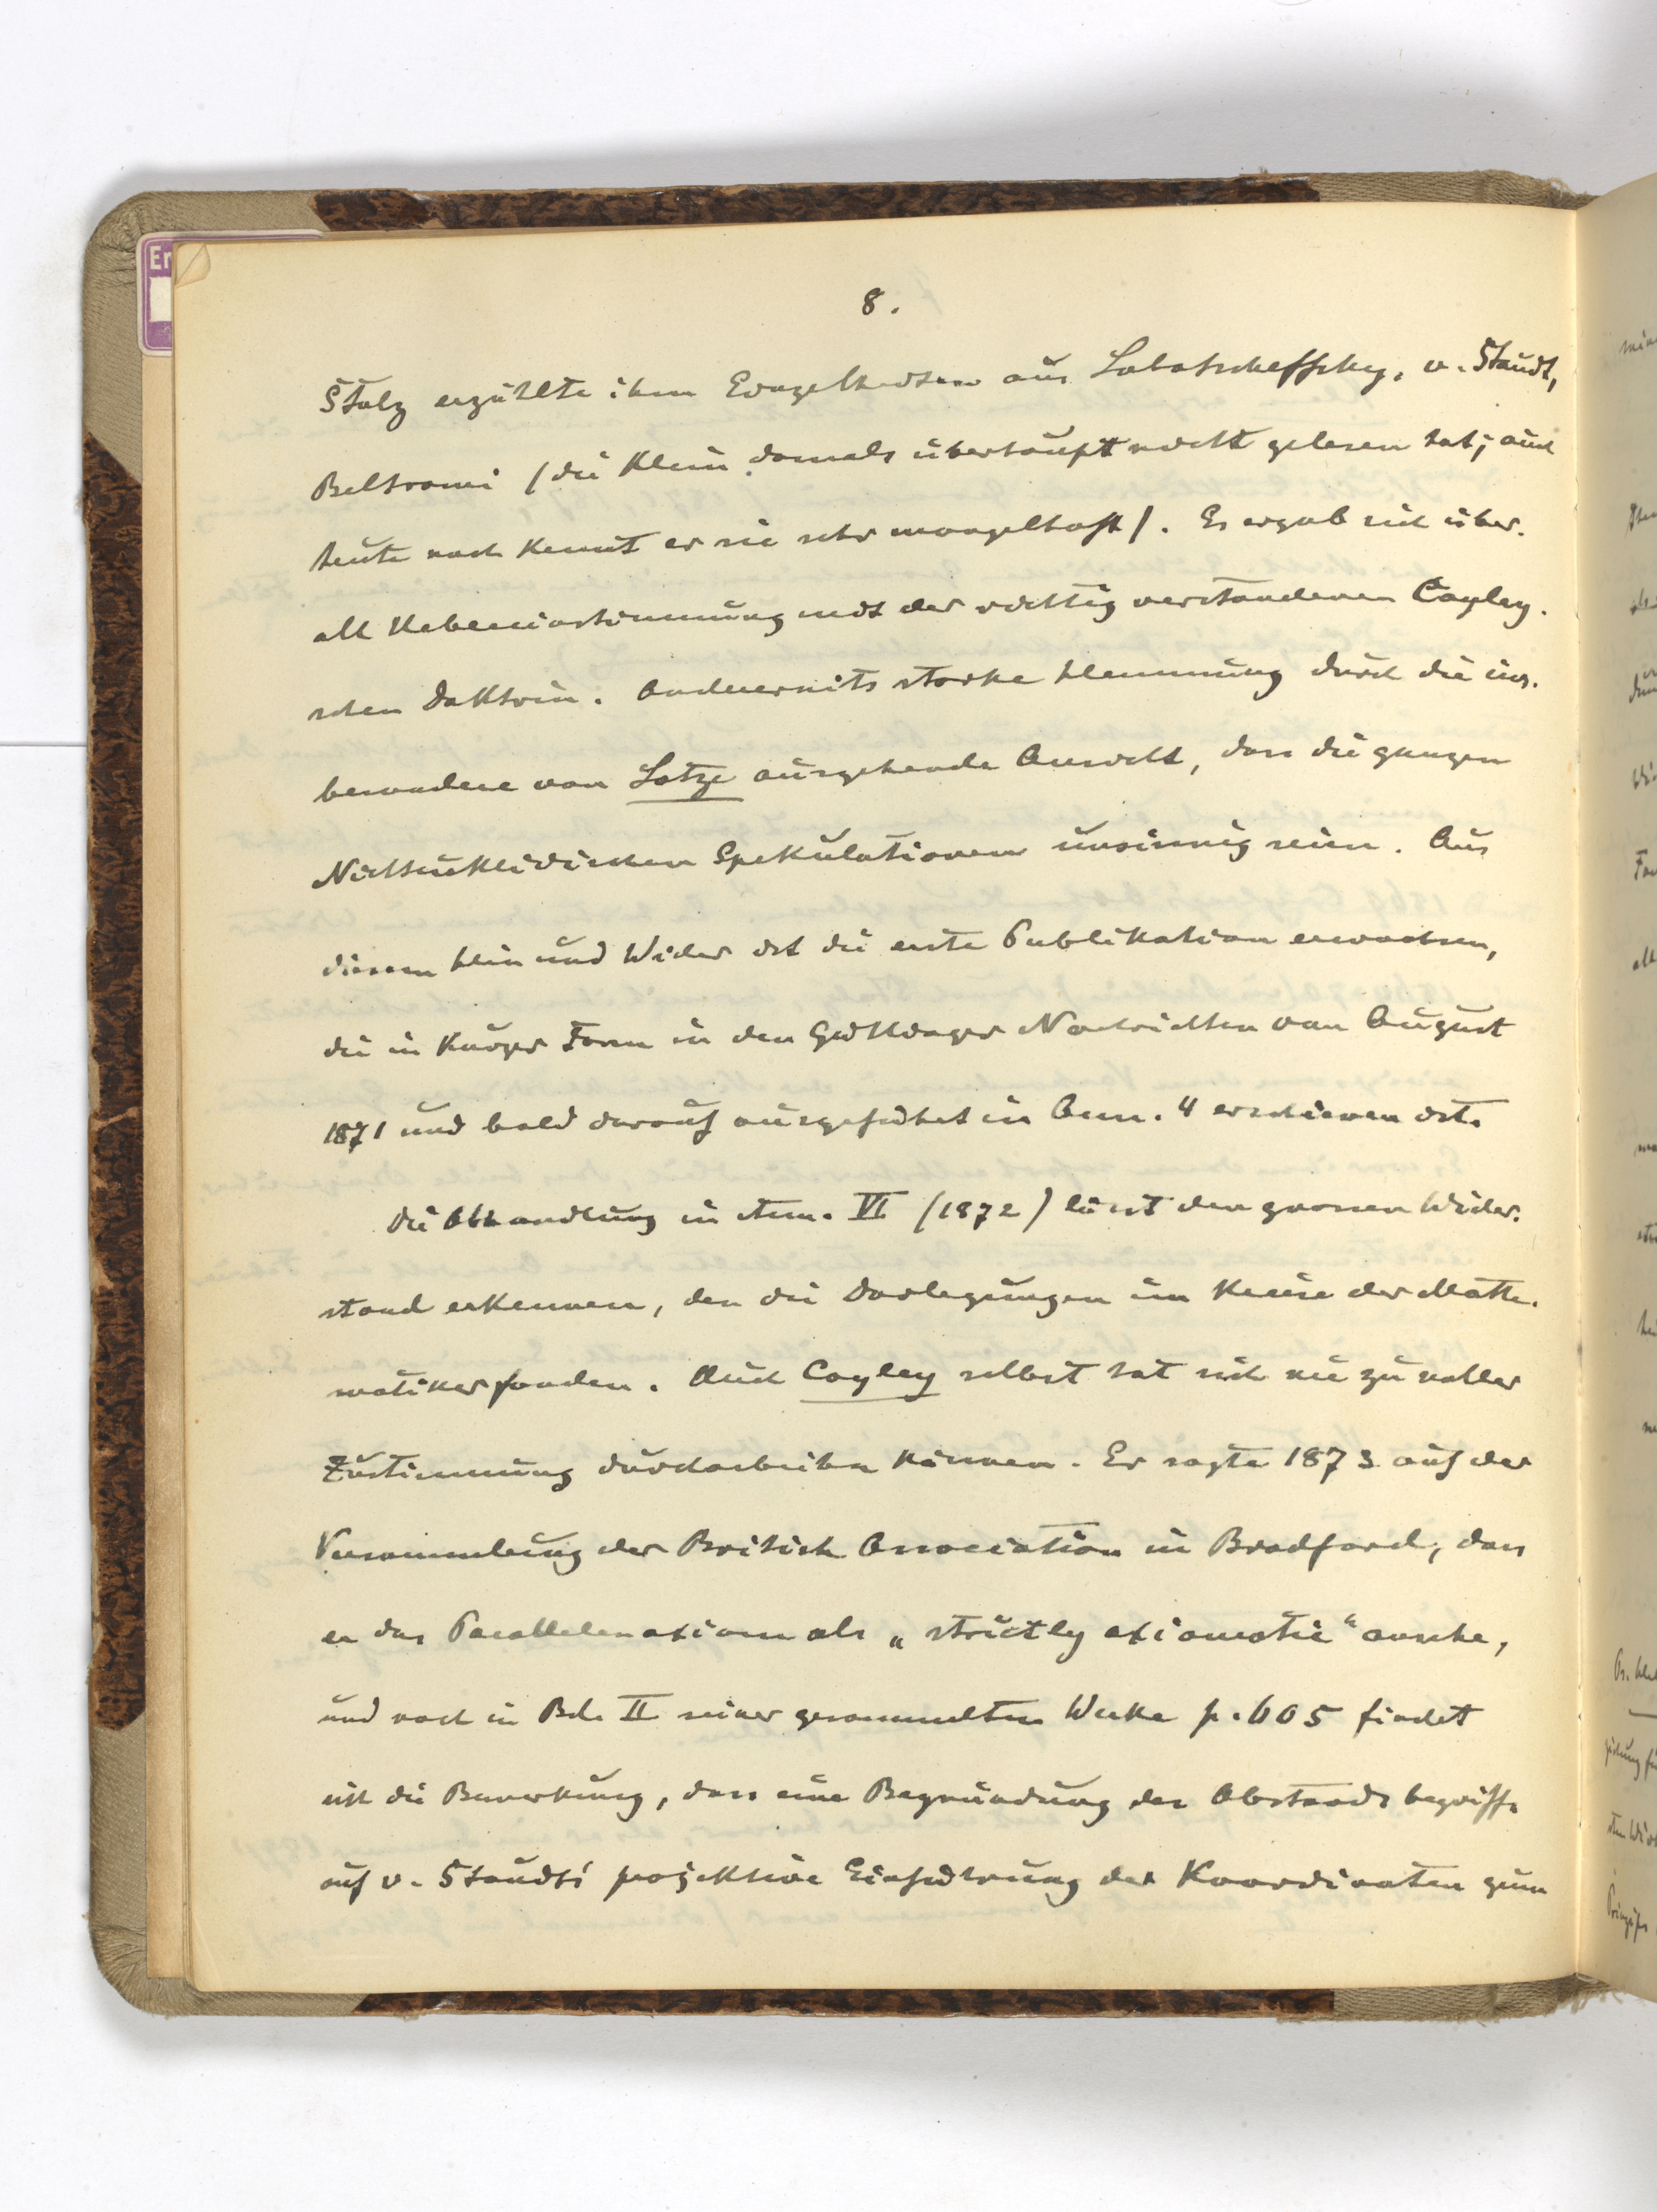 8.
Stolz erzählte ihm Einzelheiten aus Lobatscheffsky, v. Staudt,
Beltrami (die Klein damals überhaupt nicht gelesen hat; auch
heute noch kennt er sie sehr mangelhaft). Es ergab sich über-
all Uebereinstimmung mit der richtig verstandenen Cayley-
schen Doktrin. Andererseits starke Hemmung durch die ins-
besondere von Lotze ausgehende Ansicht, dass die ganzen
Nichteuklidischen Spekulationen unsinnig seien. Aus
diesem Hin und Wider ist die erste Publikation erwachsen,
die in kurzer Form in den Göttinger Nachrichten vom August
1871 und bald darauf ausgeführt in Ann. 4 erschienen ist.
Die Abhandlung in Ann. VI (1872) lässt den grossen Wider-
stand erkennen, den die Darlegungen im Kreise der Mathe-
matiker fanden. Auch Cayley selbst hat sich nie zu voller
Zustimmung durcharbeiten können. Er sagte 1873 auf der
Versammlung der British Association in Bradford, dass
er das Parallelenaxiom als „strictly axiomatic“ ansehe,
und noch in Bd. II seiner gesammelten Werke p. 605 findet
sich die Bemerkung, dass eine Begründung des Abstandsbegriffs
auf v. Staudts' projektive Einführung der Koordinaten zum